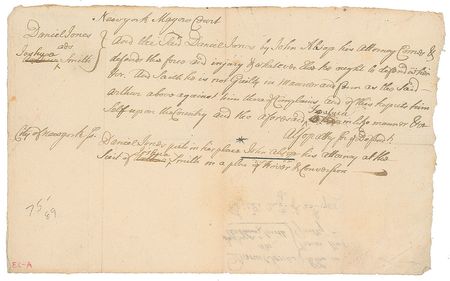 Newyork Mayors Court
Daniel Jones
ads
Joshua
Smith
And the Said Daniel Jones by John Alsop his Attorney Comes &
defends the force and injury & whatever Else he ought to defend at when
&ca. And Saith he is not Guilty in Manner and form as the Said
Arthur above against him there of Complains, and of this he puts him
Self upon the Country and the aforesaid Joshua in like manner &ca
Alsop atty for ye Defend't.
City of Newyork Ss. Daniel Jones puts in his place John Alsop his attorney at the
Suit of Joshua Smith on a plea of Trover & Conversion
75/89
EC-A